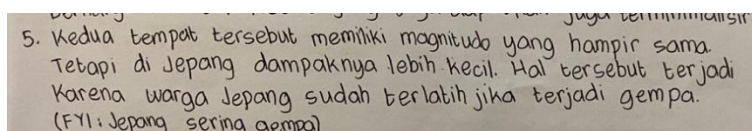 juga terminimalisir
5. Kedua tempat tersebut memiliki magnitudo yang hampir sama.
Tetapi di Jepang dampaknya lebih kecil. Hal tersebut terjadi
Karena warga Jepang sudah terlatih jika terjadi gempa.
(FYI: Jepang sering gempa)